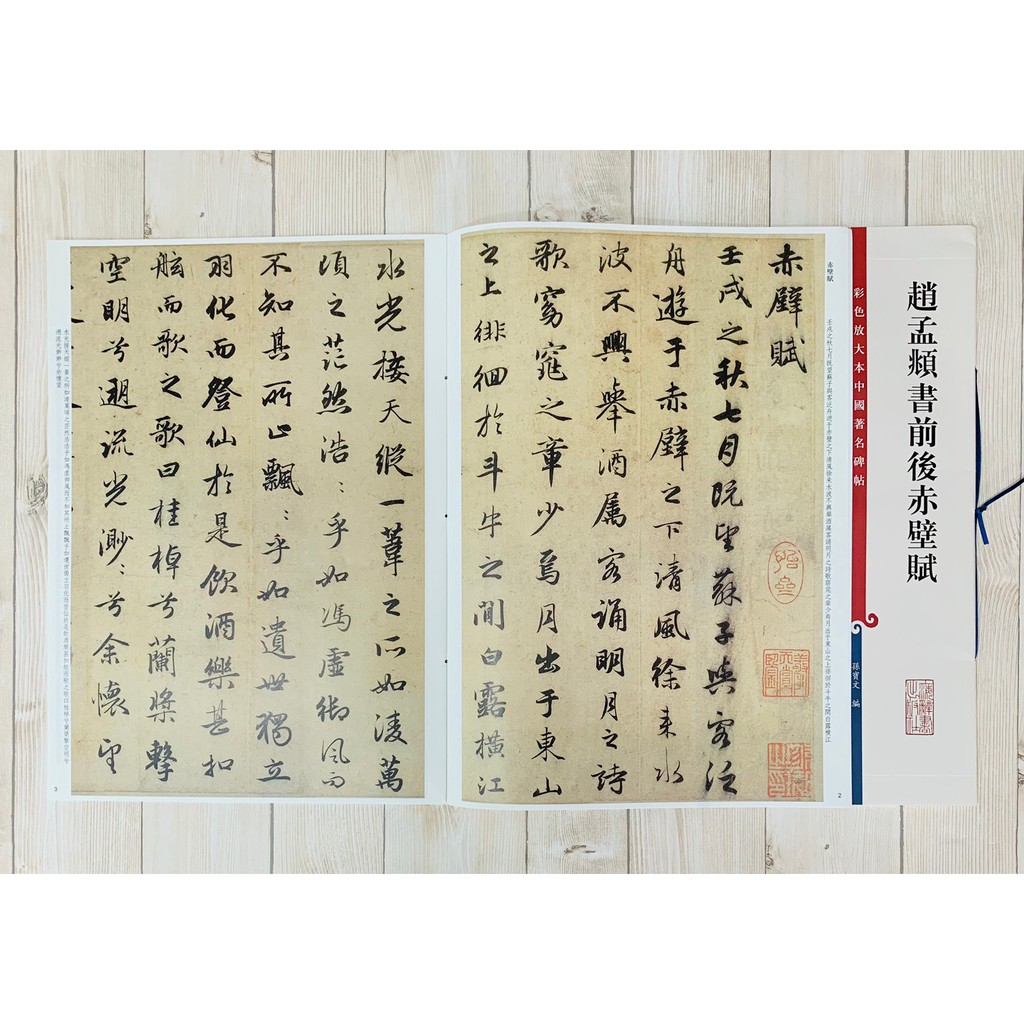 趙孟頫書前後赤壁賦
彩色放大本中國著名碑帖
孫寶文 編
赤壁賦
赤壁賦
壬戌之秋七月既望蘇子與客泛
舟遊于赤壁之下清風徐來水
波不興舉酒属客誦明月之詩
歌窈窕之章少焉月出于東山
之上徘徊於斗牛之間白露橫江
2
水光接天縱一葦之所如淩萬
頃之茫然浩〻乎如馮虛御風而
不知其所止飄〻乎如遺世獨立
羽化而登仙於是飲酒樂甚扣
舷而歌之歌曰桂棹兮蘭槳擊
空明兮遡流光渺〻兮余懷望
3